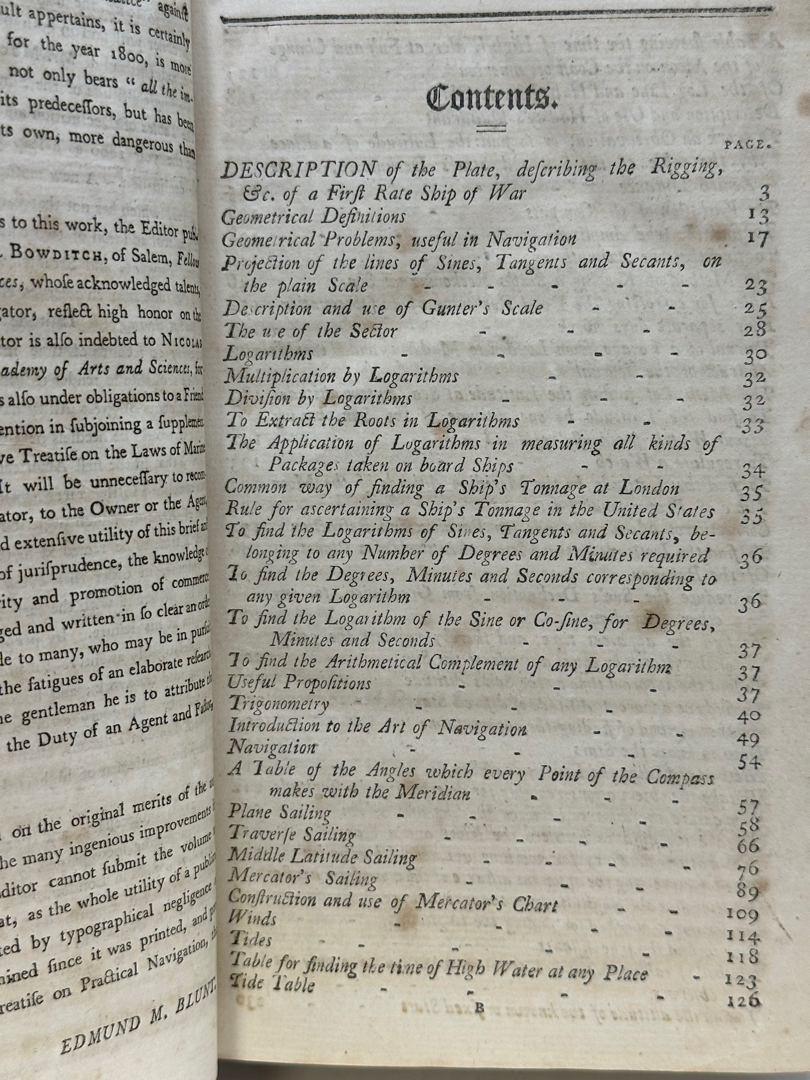 ult appertains, it is certainly
for the year 1800, is more
not only bears “ all the im-
its predeceſſors, but has been
ts own, more dangerous than
s to this work, the Editor
BOWDITCH, of Salem, Fellow
ces, whoſe acknowledged talents,
gator, reflect high honor on the
tor is alſo indebted to NICOLAS
ademy of Arts and Sciences, for
s alſo under obligations to a Friend
ention in ſubjoining a ſupplement
ve Treatiſe on the Laws of Marine
It will be unneceſſary to recom-
ator, to the Owner or the Agent,
d extenſive utility of this brief and
of juriſprudence, the knowledge
ity and promotion of commerce
ged and written in ſo clear an order
le to many, who may be in purſuit
the fatigues of an elaborate reſearch
he gentleman he is to attribute the
the Duty of an Agent and Factor,
on the original merits of the
he many ingenious improvements
ditor cannot ſubmit the volume
at, as the whole utility of a
ted by typographical negligence
mined ſince it was printed, and
reatiſe on Practical Navigation,
EDMUND M. BLUNT.
Contents.
PAGE.
DESCRIPTION of the Plate, deſcribing the Rigging,
&c. of a Firſt Rate Ship of War 3
Geometrical Definitions 13
Geometrical Problems, uſeful in Navigation 17
Projection of the lines of Sines, Tangents and Secants, on
the plain Scale - - - - 23
Deſcription and uſe of Gunter's Scale - - 25
The uſe of the Sector - - - 28
Logarithms - - - - 30
Multiplication by Logarithms - - - 32
Diviſion by Logarithms - - - 32
To Extract the Roots in Logarithms - - 33
The Application of Logarithms in meaſuring all kinds of
Packages taken on board Ships - - 34
Common way of finding a Ship's Tonnage at London 35
Rule for aſcertaining a Ship's Tonnage in the United States 35
To find the Logarithms of Sines, Tangents and Secants, be-
longing to any Number of Degrees and Minutes required 36
To find the Degrees, Minutes and Seconds correſponding to
any given Logarithm - - - 36
To find the Logarithm of the Sine or Co-ſine, for Degrees,
Minutes and Seconds - - - 37
To find the Arithmetical Complement of any Logarithm 37
Uſeful Propoſitions - - - 37
Trigonometry - - - - 40
Introduction to the Art of Navigation - - 49
Navigation - - - - 54
A Table of the Angles which every Point of the Compaſs
makes with the Meridian - - - 57
Plane Sailing - - - - 58
Traverſe Sailing - - - 66
Middle Latitude Sailing - - - 76
Mercator's Sailing - - - 89
Conſtruction and uſe of Mercator's Chart - - 109
Winds - - - - 114
Tides - - - - 118
Table for finding the time of High Water at any Place - 123
Tide Table - - - - 126
B